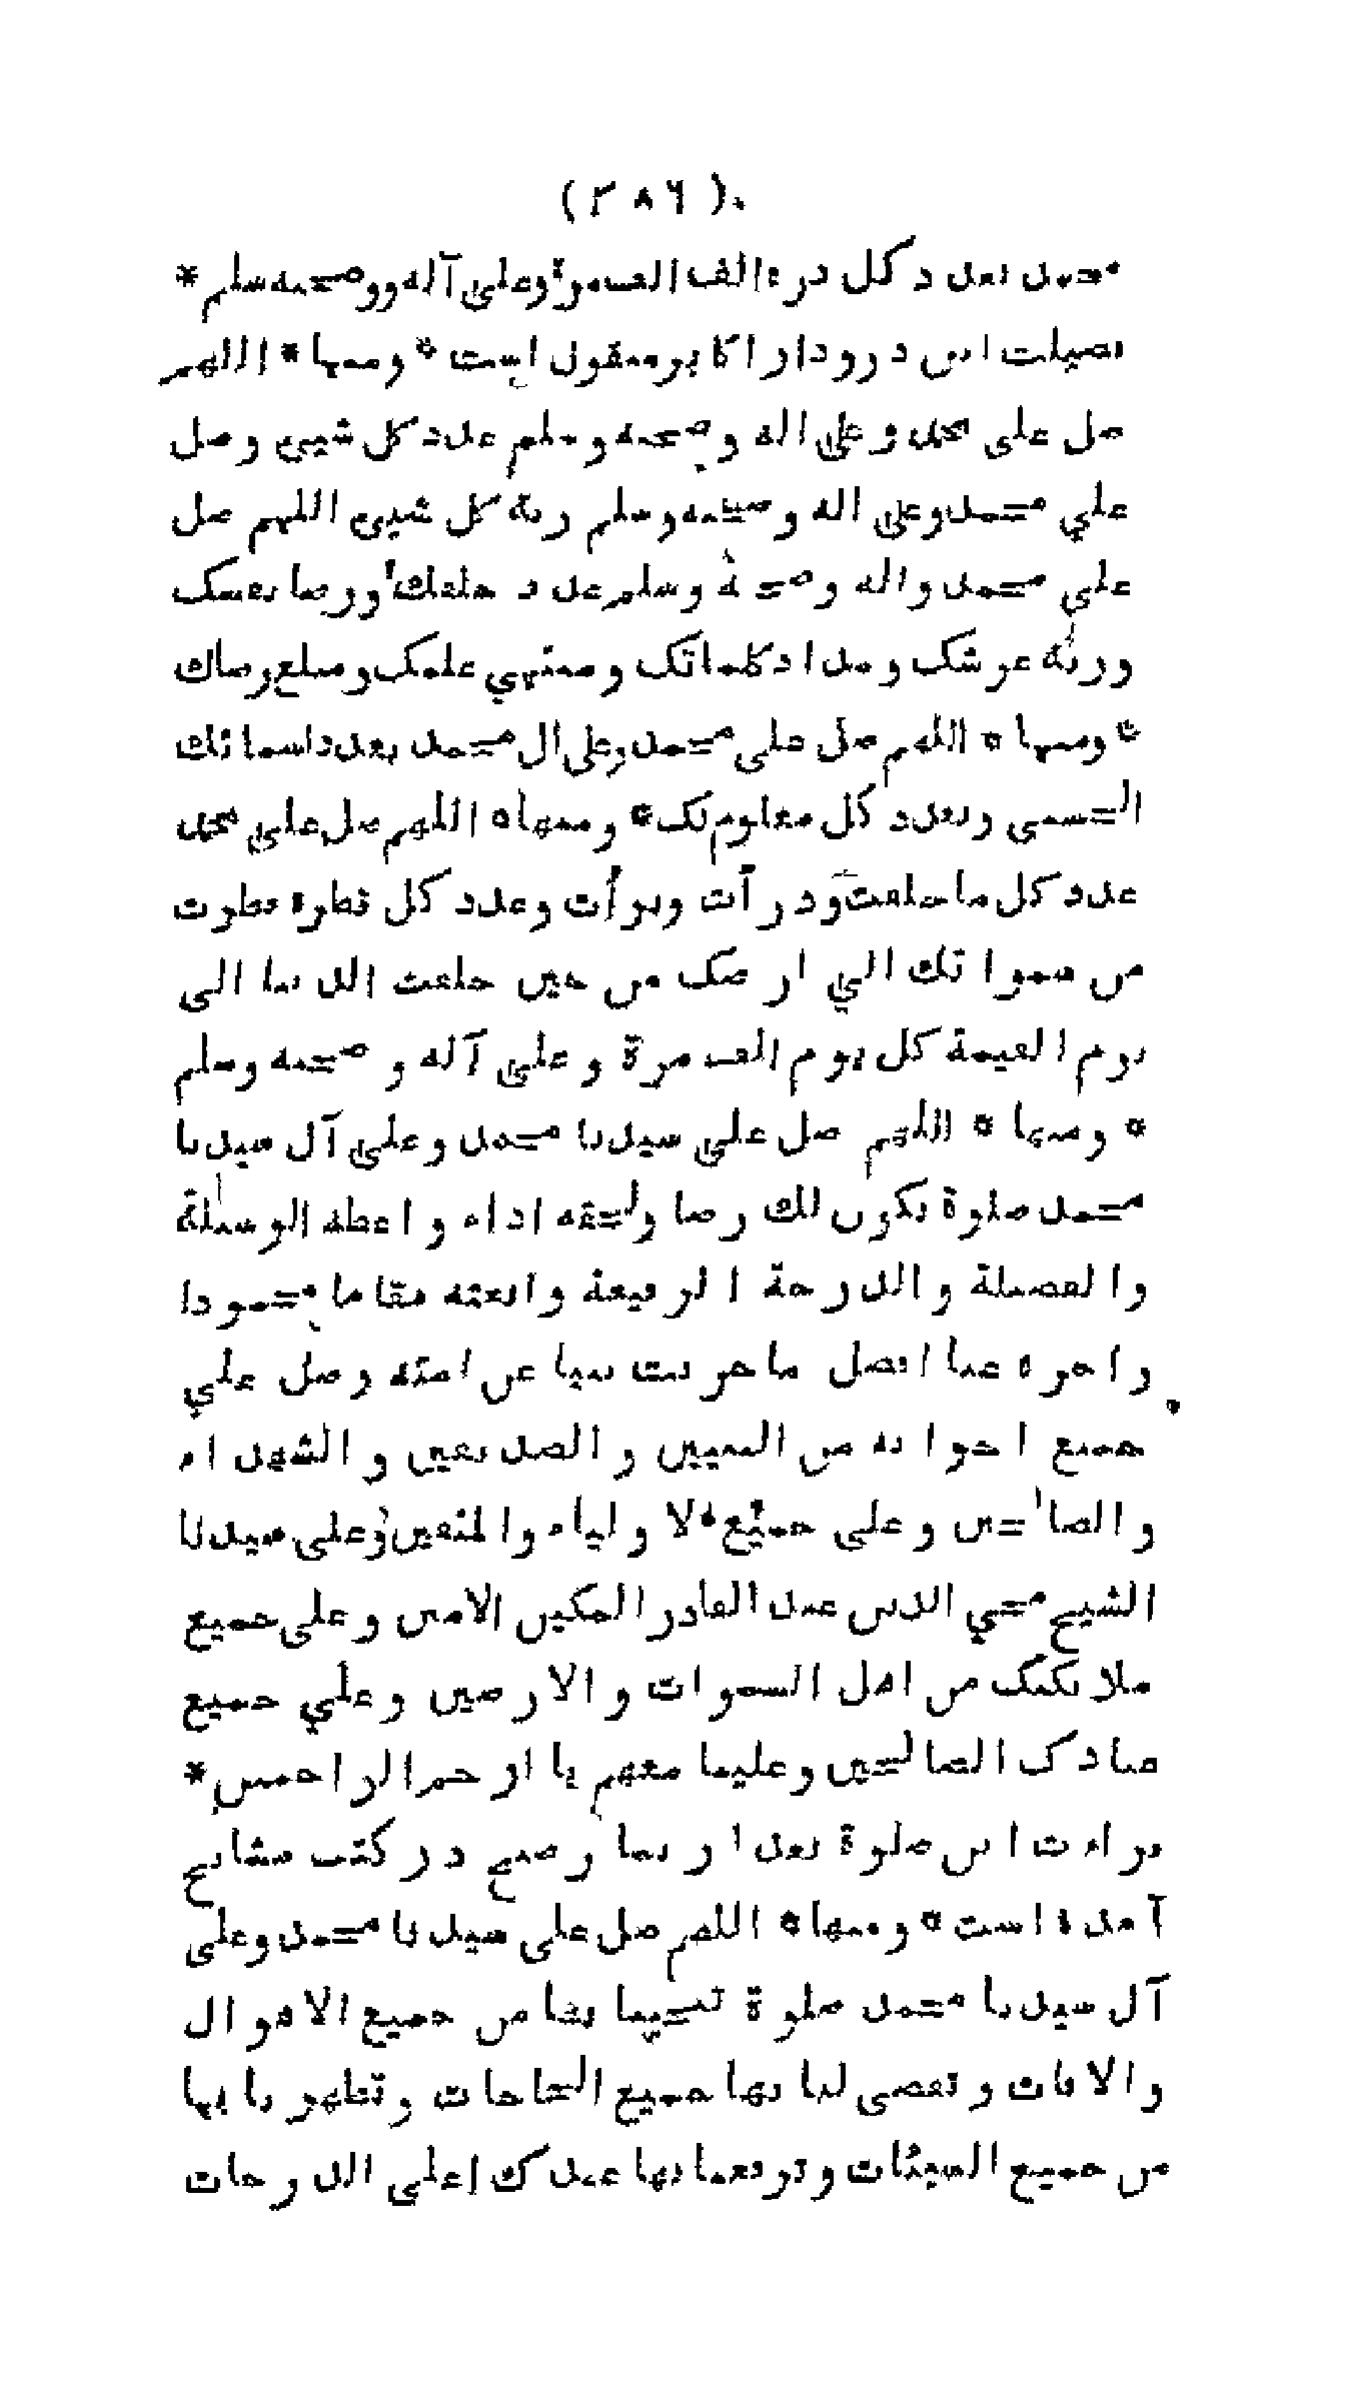 ( ٣٨٦ )
محمد بعدد كل ذره الف الف مرة وعلى آله ووصحبه سلم *
فضيلت اين درود از اكابر منقول است * ومنها * اللهم
صل على محمد و على اله و صحبه و سلم عدد كل شيى و صل
علي محمد وعلى اله و صحبه و سلم زنة كل شيى اللهم صل
علي محمد و اله و صحبه و سلم عدد خلقك و رضا نفسك
و زنة عرشك و مداد كلماتك و منتهي علمك و مبلغ رضاك
* ومنها * اللهم صل على محمد وعلى ال محمد بعدد اسمائك
الحسنى وبعدد كل معلوم لك * ومنها * اللهم صل على محمد
عدد كل ما خلقت و ذرأت وبرأت وعدد كل قطرة قطرت
من سمواتك الي ارضك من حين خلقت الدنيا الى
يوم القيمة كل يوم الف مرة و على آله و صحبه وسلم
* ومنها * اللهم صل على سيدنا محمد وعلى آل سيدنا
محمد صلوة تكون لك رضا ولحقه اداء و اعطه الوسيلة
والفضيلة و الدرجة الرفيعة وابعثه مقاما محمودا
واجزه عنا افضل ما جزيت نبيا عن امته وصل علي
جميع اخوانه من النبيين و الصديقين و الشهداء
والصالحين و على جميع الاولياء والمتقين وعلى سيدنا
الشيخ محي الدين عبد القادر المكين الامين وعلى جميع
ملائكتك من اهل السموات والارضين وعلي جميع
عبادك الصالحين وعلينا معهم يا ارحم الراحمين *
قراءت اين صلوة بعد از نماز صبح در كتب مشايخ
آمده است * ومنها * اللهم صل على سيدنا محمد وعلى
آل سيدنا محمد صلوة تنجينا بها من جميع الاهوال
والافات و تقضى لنا بها جميع الحاجات وتطهرنا بها
من جميع السيئات وترفعنا بها عندك اعلى الدرجات